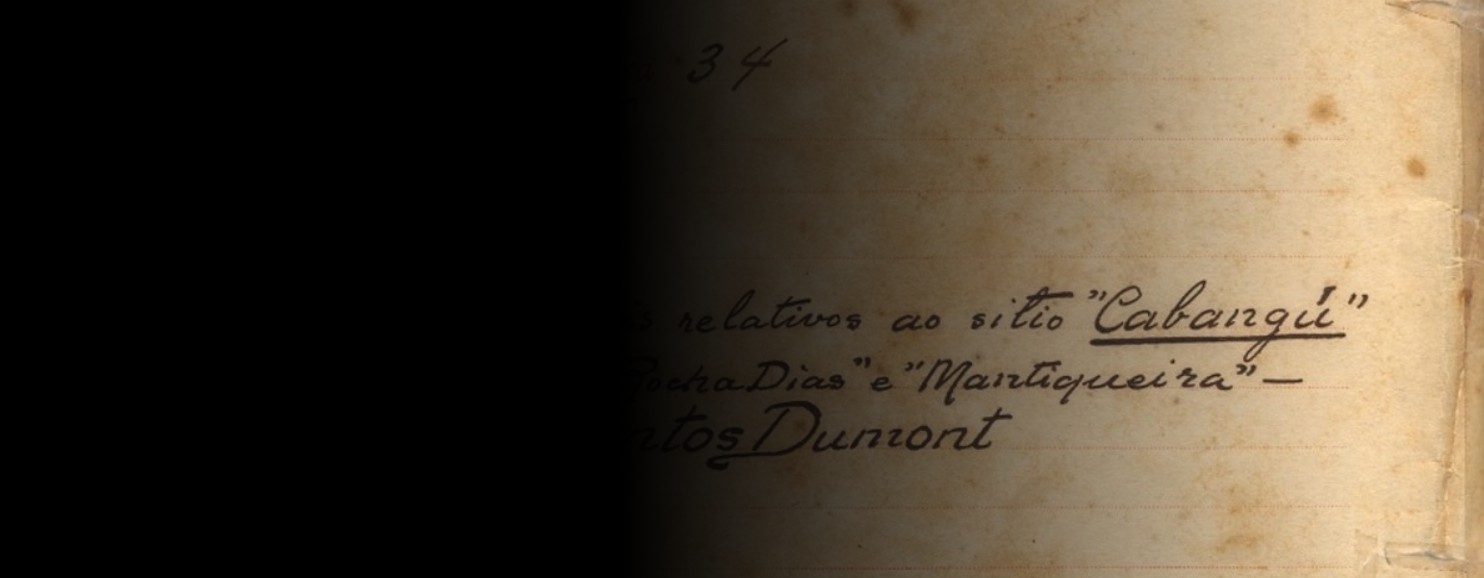 34
relativos ao sitio "Cabangú"
Rocha Dias" e "Mantiqueira" —
ntos Dumont